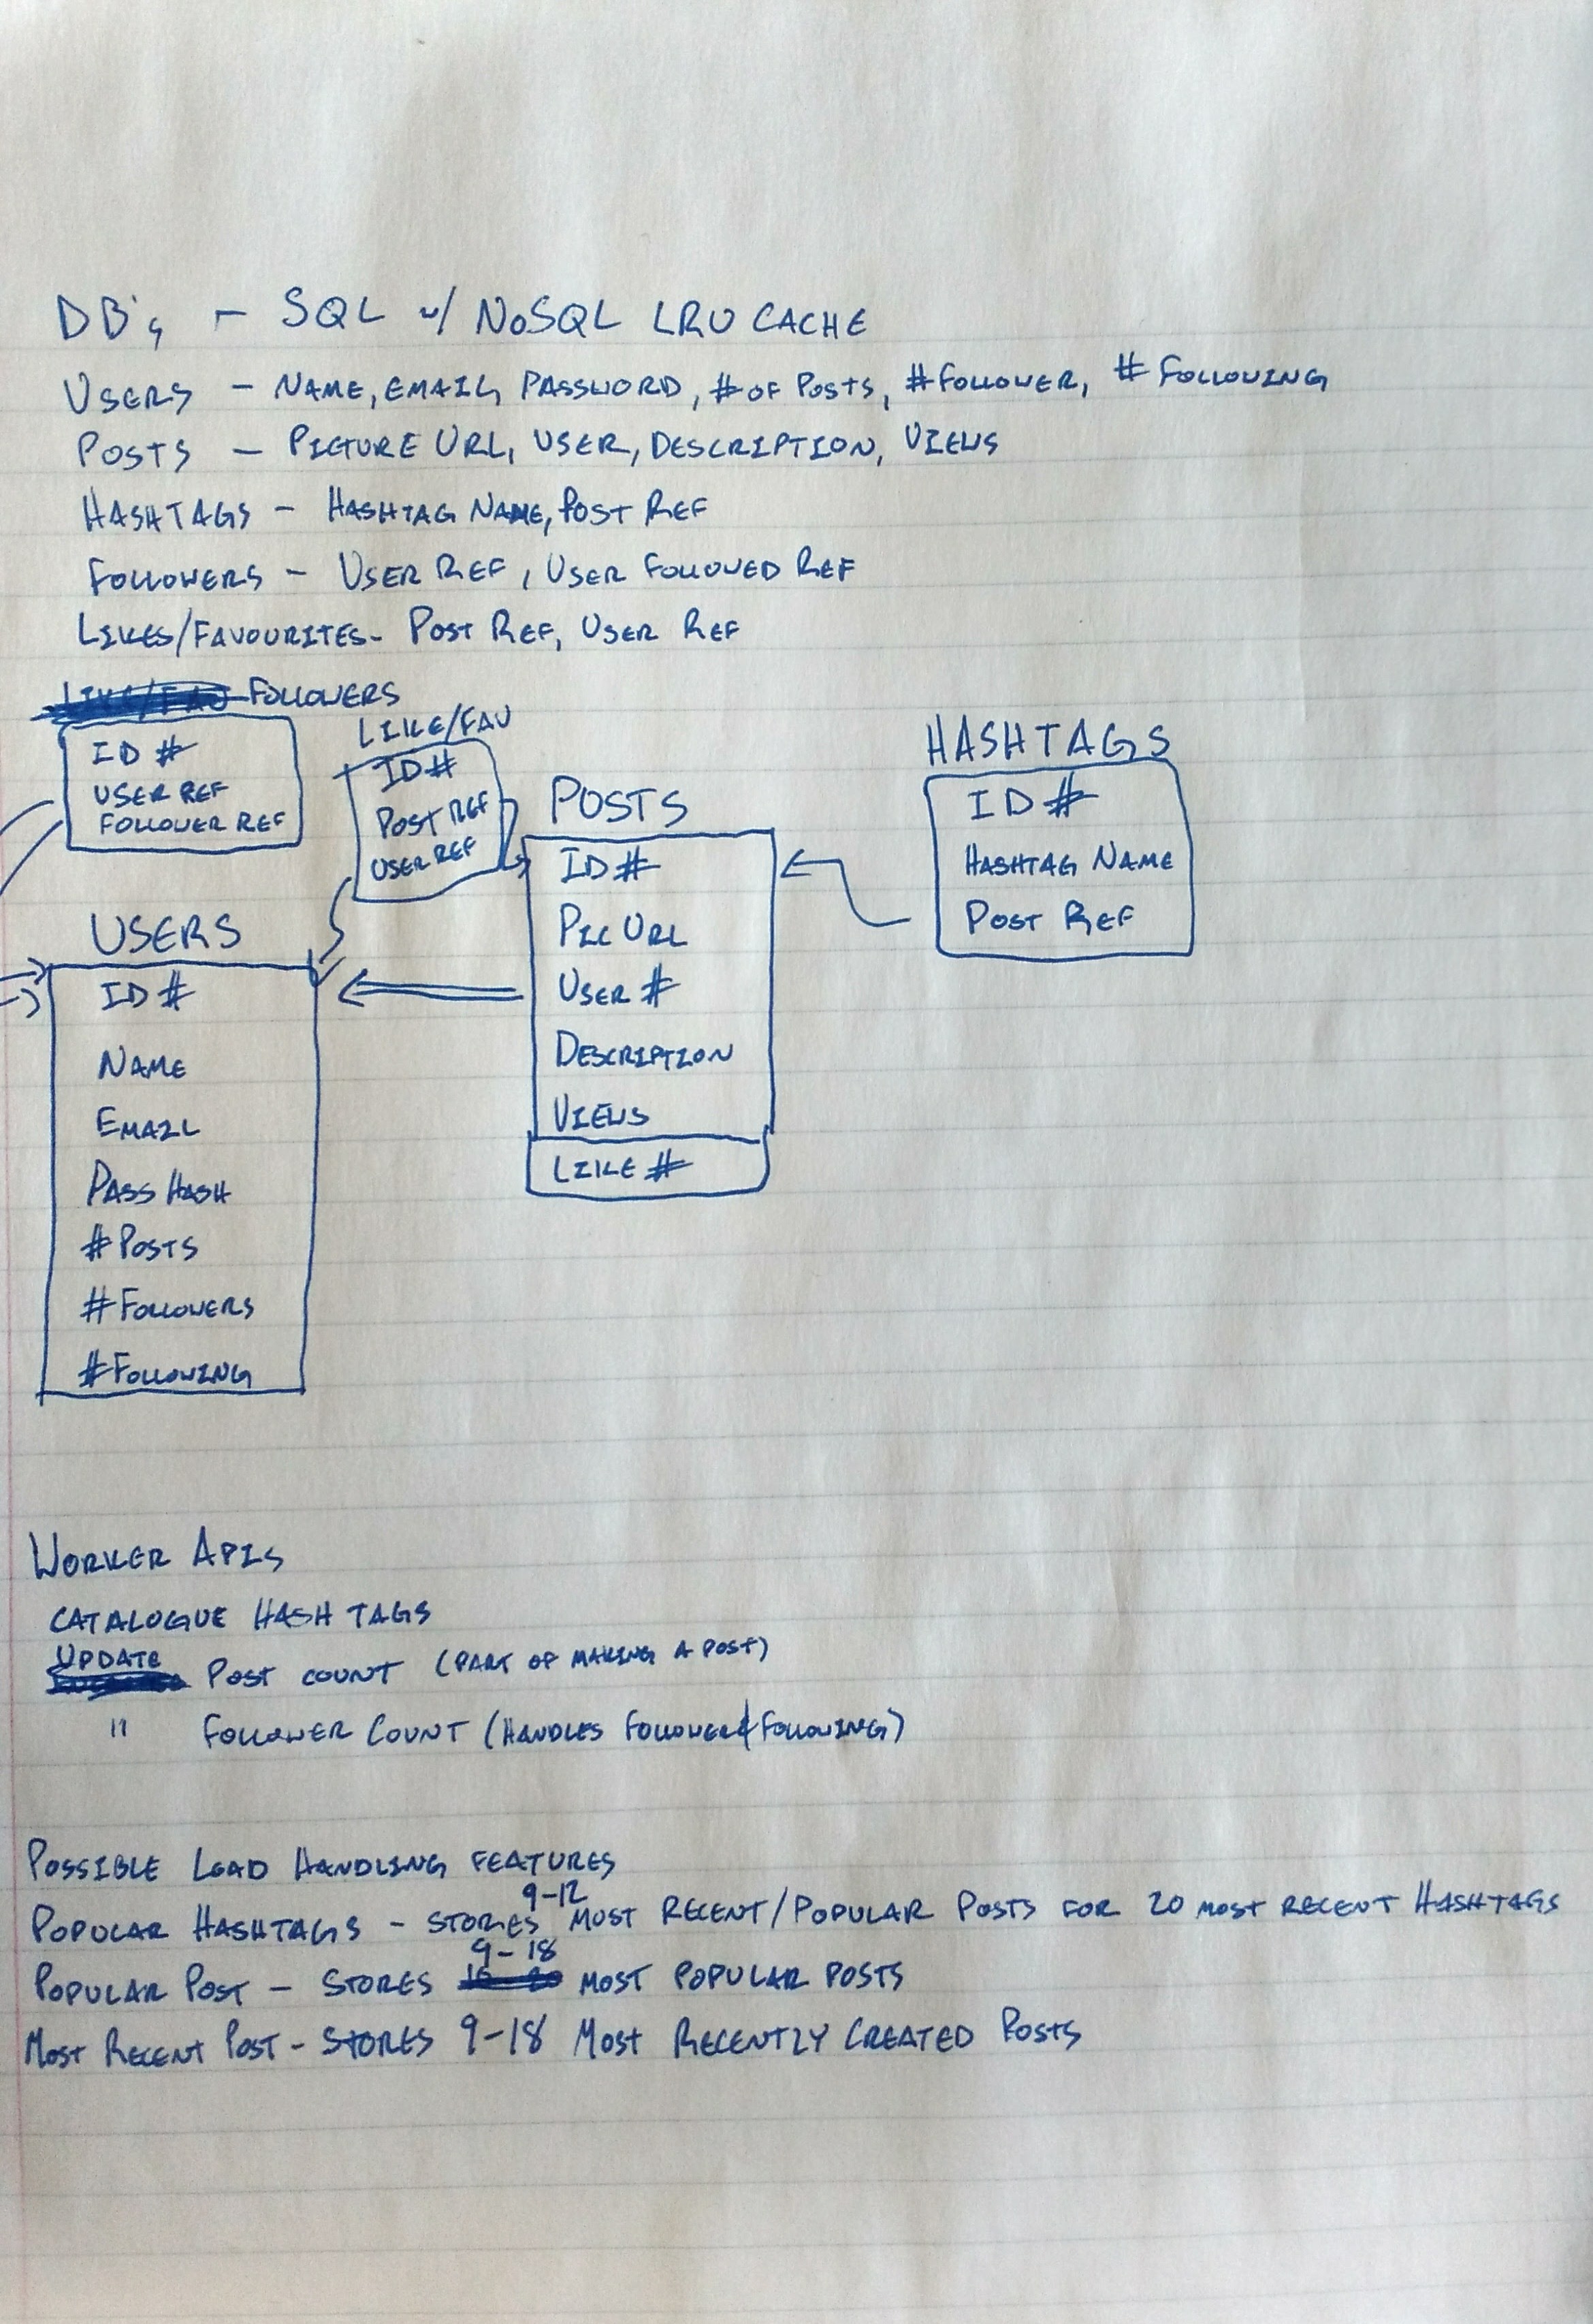 DB's - SQL w/ NoSQL LRU CACHE
USERS - NAME, EMAIL, PASSWORD, # OF POSTS, # FOLLOWER, # FOLLOWING
POSTS - PICTURE URL, USER, DESCRIPTION, VIEWS
HASHTAGS - HASHTAG NAME, POST REF
FOLLOWERS - USER REF, USER FOLLOWED REF
LIKES/FAVOURITES - POST REF, USER REF
LIKE/FAV FOLLOWERS
ID #
USER REF
FOLLOWER REF
LIKE/FAV
ID #
POST REF
USER REF
POSTS
ID #
PIC URL
USER #
DESCRIPTION
VIEWS
LIKE #
HASHTAGS
ID #
HASHTAG NAME
POST REF
USERS
ID #
NAME
EMAIL
PASS HASH
# POSTS
# FOLLOWERS
# FOLLOWING
WORKER APIS
CATALOGUE HASH TAGS
UPDATE POST COUNT (PART OF MAKING A POST)
" FOLLOWER COUNT (HANDLES FOLLOWER & FOLLOWING)
POSSIBLE LOAD HANDLING FEATURES
POPULAR HASHTAGS - STORES 9-12 MOST RECENT/POPULAR POSTS FOR 20 MOST RECENT HASHTAGS
POPULAR POST - STORES 9-18 MOST POPULAR POSTS
MOST RECENT POST - STORES 9-18 MOST RECENTLY CREATED POSTS